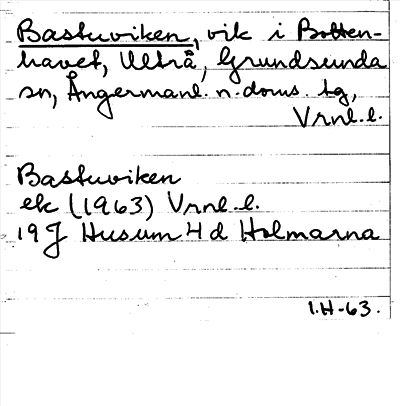 Bastuviken, vik i Botten-
havet, Ultrå, Grundsunda
sn, Ångermanl. n. doms. tg,
Vrnl. l.
Bastuviken
ek (1963) Vrnl. l.
19J Husum 4 d Holmarna
I.H-63.